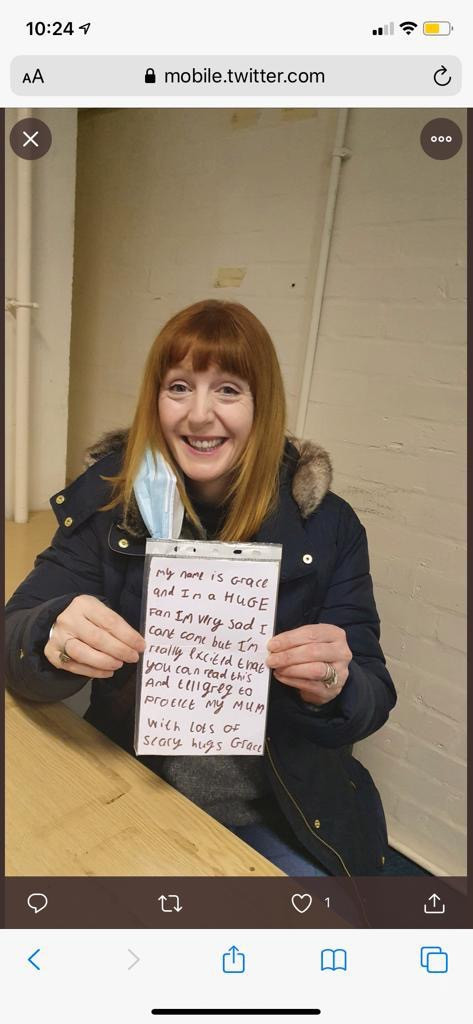 10:24
AA mobile.twitter.com
my name is Grace
and I'm a HUGE
Fan IM very sad I
cant come but I'm
really excited that
you can read this
And tell greg to
protect my MUM
with lots of
scary hugs Grace
1